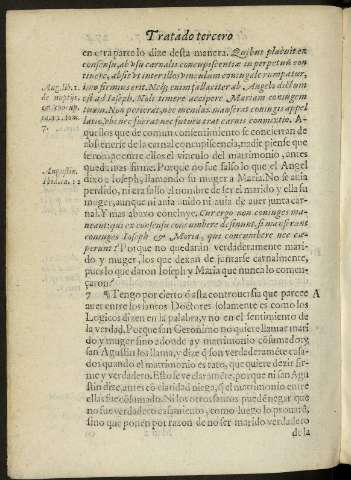 Tratado tercero
en otra parte lo dize desta manera. Quibus placuit ex
consensu, ab vsu carnalis concupiscentiæ in perpetuũ con
tinere, absit vt inter illos vinculum coniugale rumpatur,
imo firmius erit. Neq; enim fallaciter ab Angelo dictum
est ad Ioseph. Noli timere accipere Mariam coniugem
tuam. Non perierat, nec mendax manserat coniugis appel
latio, vbi nec fuerat nec futura erat carnis commixtio. A-
quellos que de comun consentimiento se conciertan de
abstenerse de la carnal concupiscencia, nadie piense que
se rompa entre ellos el vinculo del matrimonio, antes
quedara mas firme. Porque no fue falso lo que el Angel
dixo a Ioseph, llamando su muger a Maria. No se auia
perdido, ni era falso el nombre de ser el marido y ella su
muger, aunque ni auia auido ni auia de auer junta car-
nal. Y mas abaxo concluye. Cur ergo non coniuges ma-
neant: qui ex consensu concumbere desinunt, si manserunt
coniuges Ioseph & Maria, qui concumbere nec cæ-
perunt? Porque no quedaràn verdaderamente mari-
do y muger, los que dexan de juntarse carnalmente,
pues lo quedaron Ioseph y Maria que nunca lo comen-
çaron?
7 ¶ Tengo por cierto q̃ esta controuersia que parece A
auer entre los santos Doctores solamente es como los
Logicos dizen en la palabra, y no en el sentimiento de
la verdad. Porque san Geronimo no quiere llamar mari
do y muger sino adonde ay matrimonio cõsumado: y
san Agustin los llama, y dize q̃ son verdaderamẽte casa-
dos quando el matrimonio es rato, que quiere dezir fir-
me y verdadero. Esto se ve claramẽte, porque ni san Agu
stin dize, antes cõ claridad niega, q̃ el matrimonio entre
ellas fue cõsumado. Ni los otros santos puedẽ negar que
no fue verdadero casamiento, como luego lo prouarè,
sino que ponen por razon de no ser marido verdadero
de la
Aug. lib. 1.
de nuptijs.
7.
Augustin.